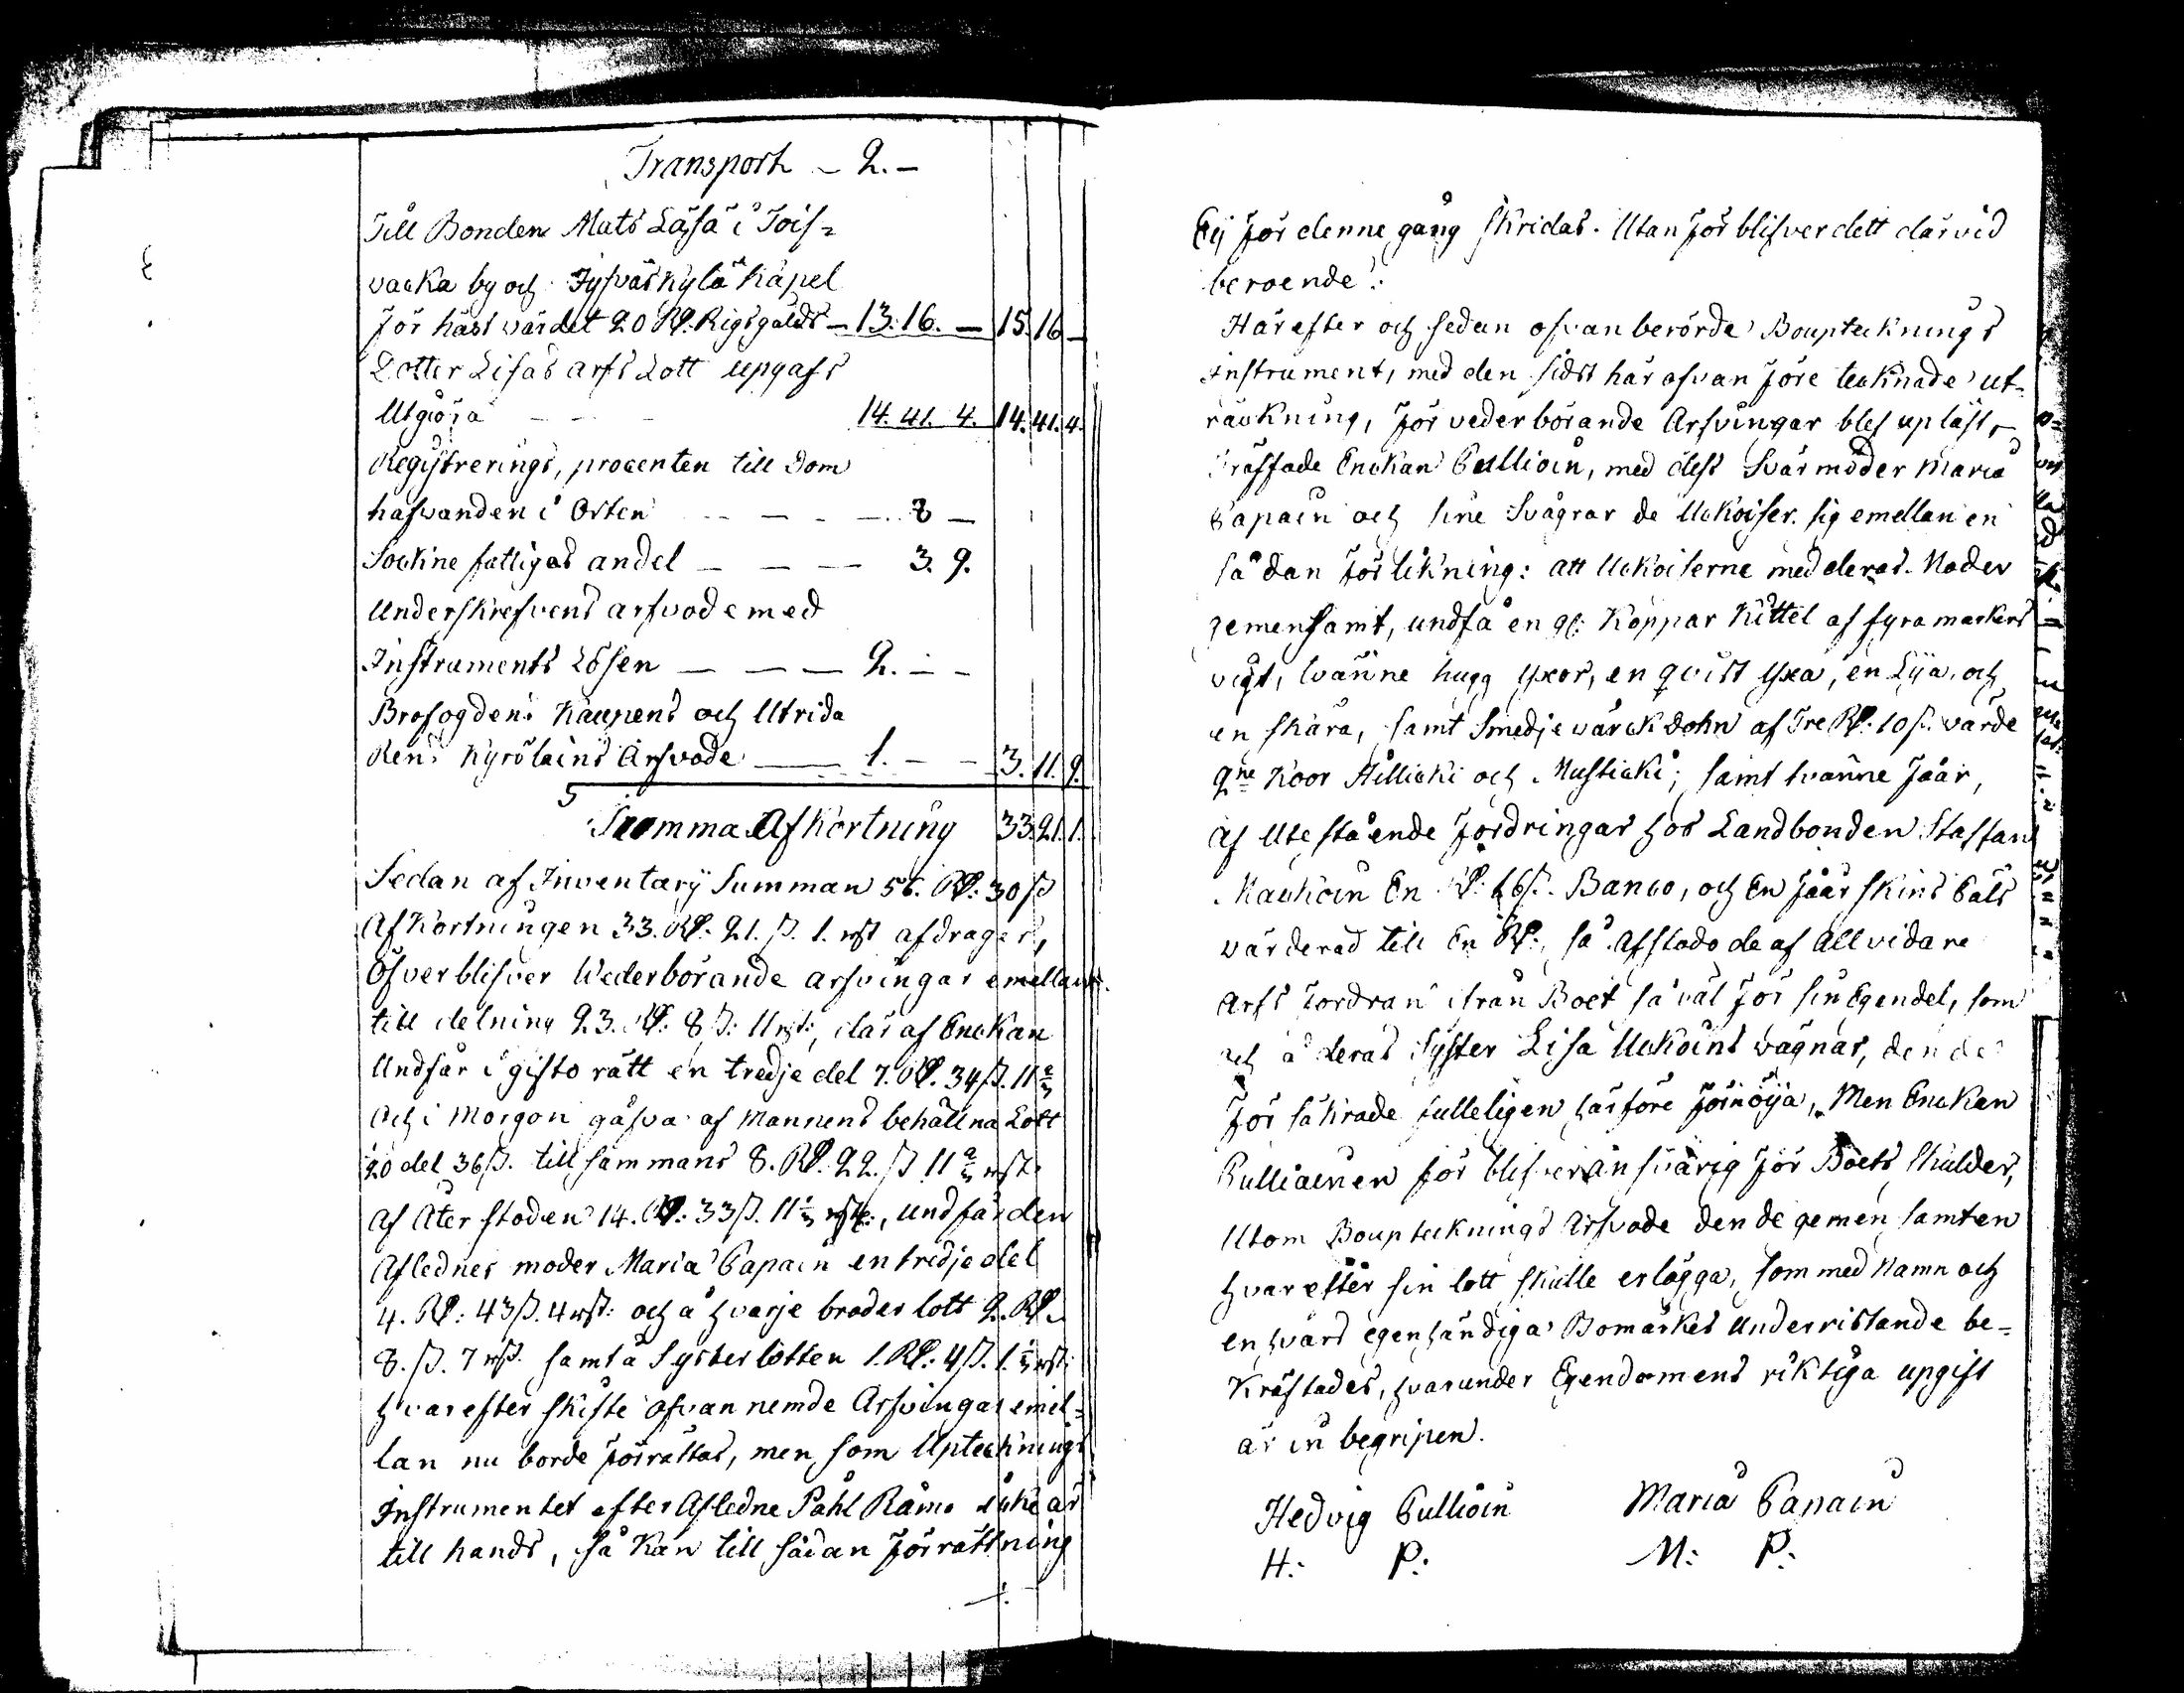 Transport - 2. -
Till Bonden Mats Läsä i Tois=
vacka by och Jyfväskylä Kapel
för häst värdet 20 Rd. Rigsgälds - 13. 16. - 15. 16 -
Dotter Lisas arfs Lott upgafs
Utgiöra - - - 14. 41. 4. 14. 41. 4.
Registrerings, procenten till Dom
hafvanden i Orten - - - - 8 -
Sockne fattigas andel - - - 3. 9.
Underskrefvens arfvode med
Instruments Lösen - - - 2. - -
Brofogdens Kaupens och Utrida
Rens Kyröläins Arfvode - 1. - - 3. 11. 9.
Summa Afkortning 33. 21. 1.
Sedan af Inventarij Summan 56. Rd: 30 ß
Afkortningen 33. Rd. 21. ß. 1. rst afdrages,
Öfverblifver Wederbörande arfvingar emellan
till delning 23. Rd: 8 ß: 11 rst:, där af Enckan
Undfår i gifto rätt en tredje del 7. Rd. 34 ß. 11 2/3
Och i Morgon gåfva af Mannens behållna Lott
20 del 36 ß. till sammans 8. Rd. 22. ß 11 2/3 rst.
Af Åter stoden 14. Rd: 33 ß. 11 1/3 rst:, undfår den
Aflednes moder Maria Papain en tredje del
4. Rd: 43 ß. 4 rst: och å hvarje broder lott 2. Rd.
8. ß. 7 rst. samt å Syster lotten 1. Rd: 4 ß. 1. rst:
hvarefter skifte ofvan nemde Arfvingar emel=
lan nu borde förrättas, men som Uptecknings
Instrumentet efter Afledne Påhl Rämö icke är
till hands, så kan till sådan förrättning
Eij för denne gång skridas. Utan förblifver dett därvid
beroende.
Härefter och sedan ofvanberörde Boupteknings
instrument, med den sidst här ofvan före teknade ut=
räckning, för vederbörande Arfvingar blef upläst,
träffade Enckan Pullioin, med dess Svärmoder Maria
Papain och sine Svågrar de Uckoiser. sig emellan en
så dan förlikning: att Uckoiserne med deras Moder
gemensamt, undfå en gl: Koppar Kittel af fyra markers
vigt, tvänne hugg yxor, en qvist yxa, en Lija, och
en skära, samt Smedje värck dohn af Tre Rd. 10 ß. värde
2ne Koor Hillicki och Musticki; samt tvänne får,
af Utestående fordringar hos Landbonden Staffan
Mauhoin En Rd: 16 ß. Banco, och En fårskins Päls
värderad till En Rd:, så Afstodo de af all vidare
arfs fordran ifrån Boet så väl för sin Egendel, som
och å deras Syster Lisa Uckoins vägnar, den de
försäkrade fulleligen härföre förnöija, Men Enckan
Pulliainen förblifver ansvarig för Boets skulder,
Utom Boupteknings Arfvode den de gemensamten
hvar efter sin lott skulle erlägga, som med Namn och
en hvars egenhändiga Bomärkes Underristande be=
kräftades, hvarunder Egendomens riktiga upgift
är in begripen.
Hedvig Pullioin Maria Papain
H: P: M: P: